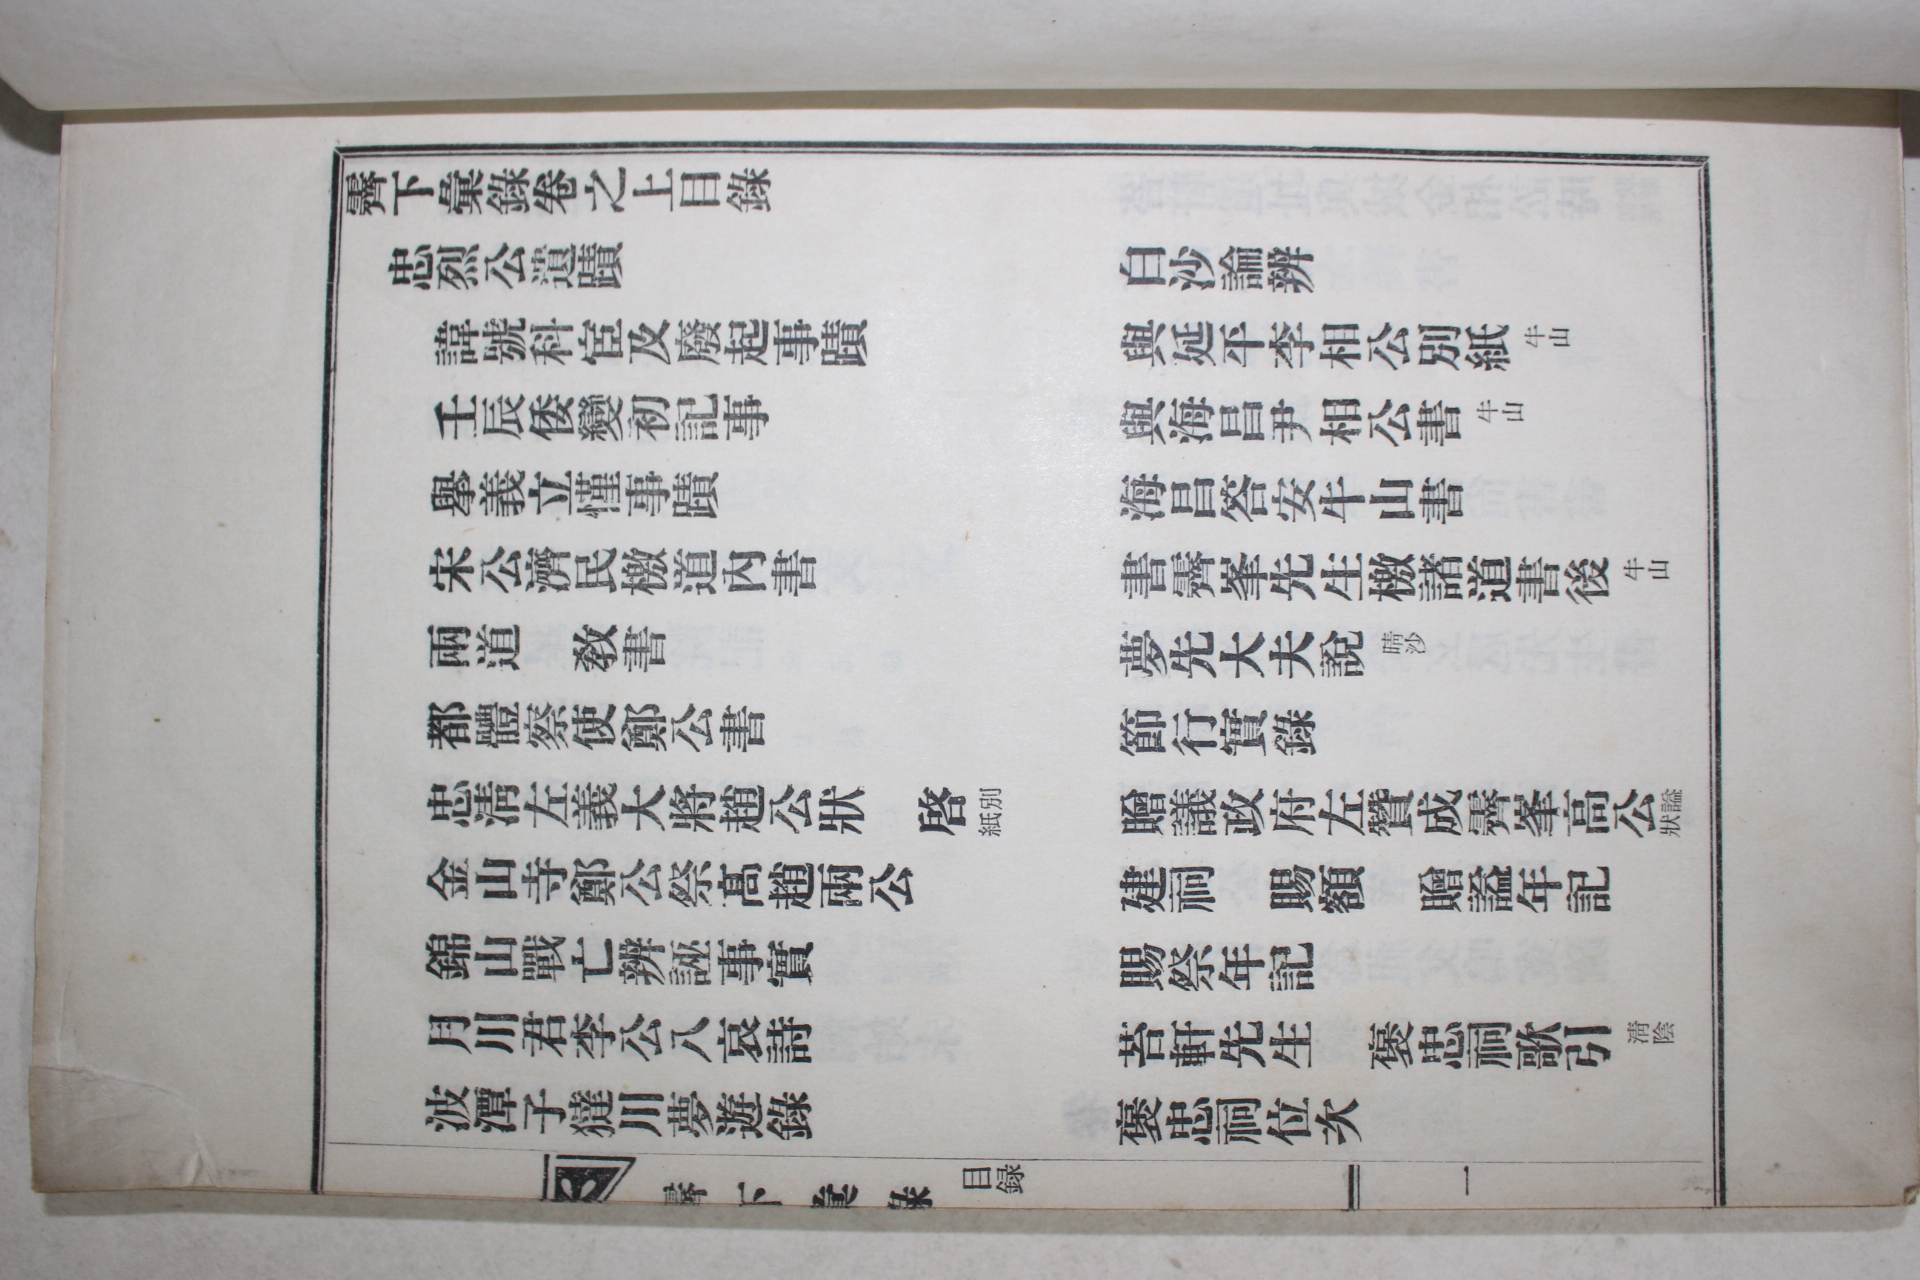 霽下彙錄卷之上目錄
忠烈公遺蹟
諱號科宦及廢起事蹟
壬辰倭變初記事
擧義立慬事蹟
宋公濟民檄道內書
兩道　敎書
都體察使鄭公書
忠淸左義大將趙公狀　啓別紙
金山寺鄭公祭髙趙兩公
錦山戰亡辨誣事實
月川君李公八哀詩
波潭子㺚川夢遊錄
白沙論辨
與延平李相公別紙 牛山
與海昌尹相公書 牛山
海昌答安牛山書
書霽峯先生檄諸道書後 牛山
夢先大夫說 晴沙
節行實錄
贈議政府左贊成霽峯高公諡狀
建祠　賜額　贈諡年記
賜祭年記
苔軒先生　褒忠祠歌引 淸陰
褒忠祠位次
霽下彙錄 目録 一